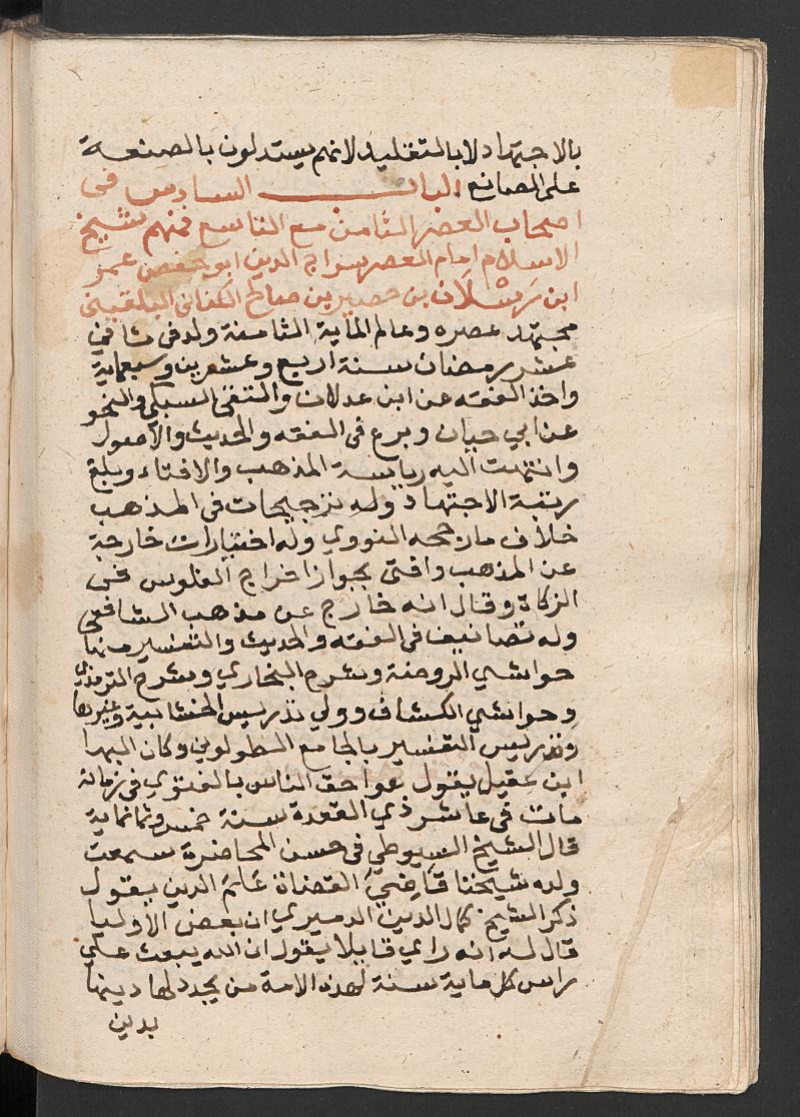 بالاجتهاد لا بالتقليد لانهم يستدلون بالصنعة
على الصانع الباب السادس في
اصحاب العصر الثامن مع التاسع فمنهم شيخ
الاسلام امام العصر سراج الدين ابو حفص عمر
ابن رسْلَان بن نصير بن صالح الكناني البلقيني
مجتهد عصره وعالم الماية الثامنة ولد في ثاني
عشر رمضان سنة اربع وعشرين وسبعماية
واخذ الفقه عن ابن عدلان والتقي السبكي والنحو
عن ابي حيان وبرع في الفقه والحديث والاصول
وانتهت اليه رياسة المذهب والافتاء وبلغ
رتبة الاجتهاد وله ترجيحات في المذهب
خلاف ما رجحه النووي وله اختيارات خارجة
عن المذهب وافتى بجواز اخراج الفلوس في
الزكاة وقال انه خارج عن مذهب الشافعي
وله تصانيف في الفقه والحديث والتفسير منها
حواشي الروضة وشرح البخاري وشرح الترمذي
وحواشي الكشاف وولي تدريس الخشابية وغيرها
وتدريس التفسير بالجامع الطولوني وكان البها
ابن عقيل يقول هو احق الناس بالفتوي في زمانه
مات في عاشر ذي القعدة سنة خمس وثمانماية
قال الشيخ السيوطي في حسن المحاضرة سمعت
ولده شيخنا قاضيَ القضاة عَلَمَ الدين يقول
ذكر الشيخ كمال الدين الدميري ان بعض الأوليا
قال له انه راي قايلا يقول ان الله يبعث علي
راس كل ماية سنة لهذه الامة من يجدد لها دينها
بدين